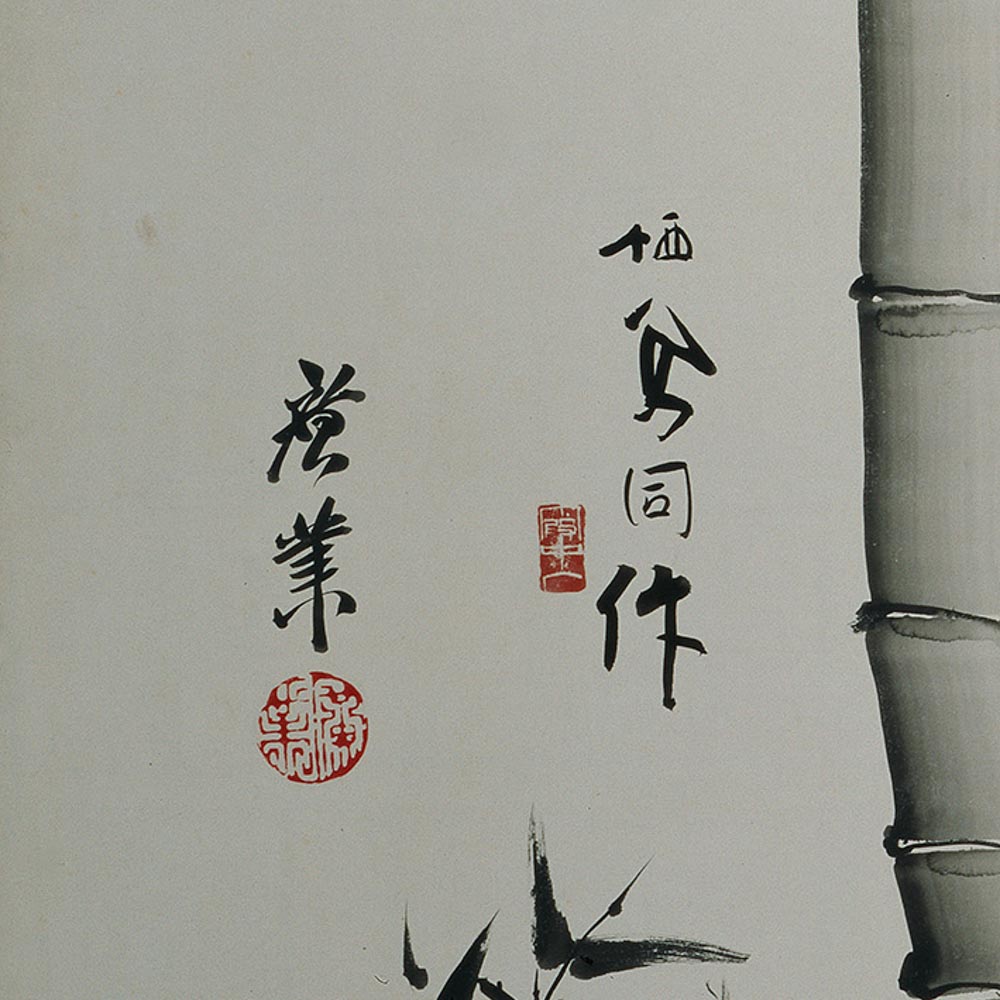 栖鳳同作
廣業